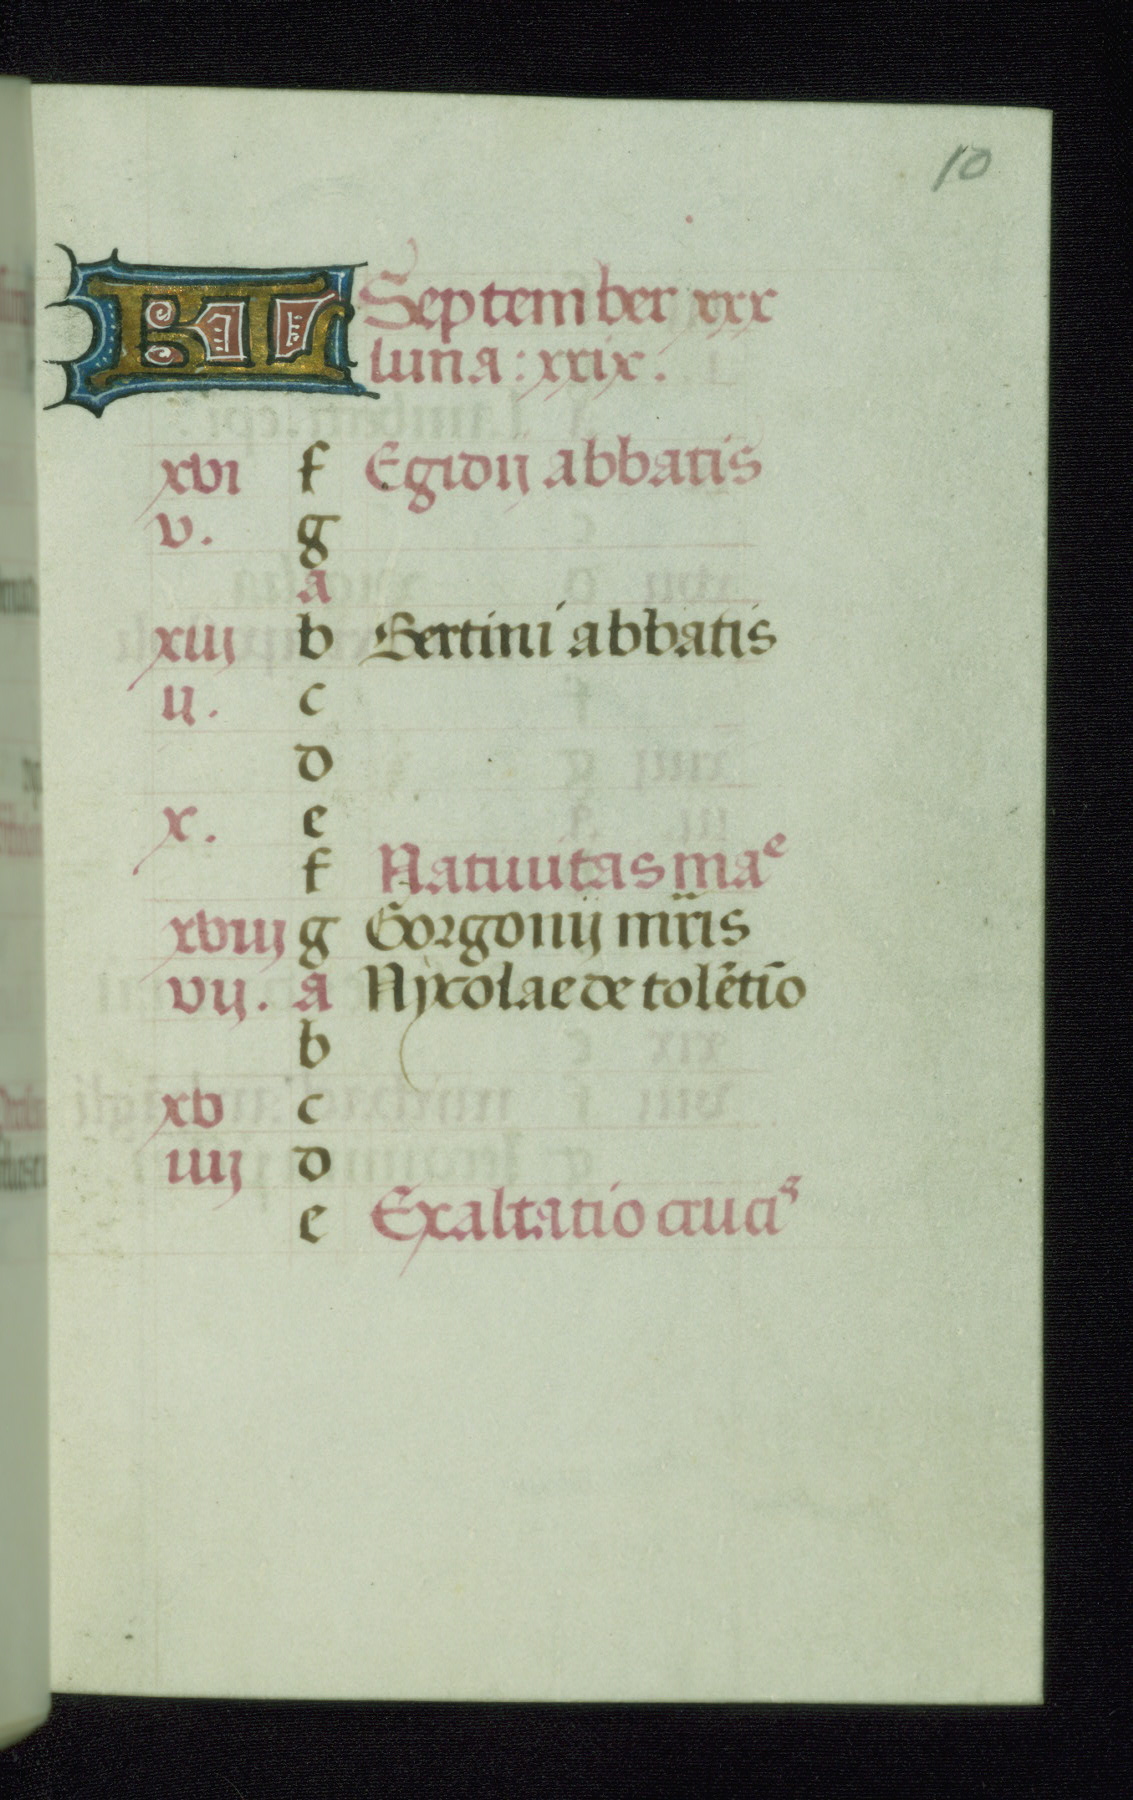 10
KL September xxx
luna : xxix.
xvi f Egidij abbatis
v. g
a
xiij b Bertini abbatis
ij. c
d
x. e
f Natiuitas mae
xviij g Gorgonij mr̄is
vij. a Nycolae de tolētīo
b
xv c
iiij d
e Exaltatio crucis